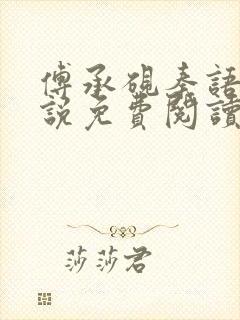 傅承硯秦語
說免費閱讀
莎莎君